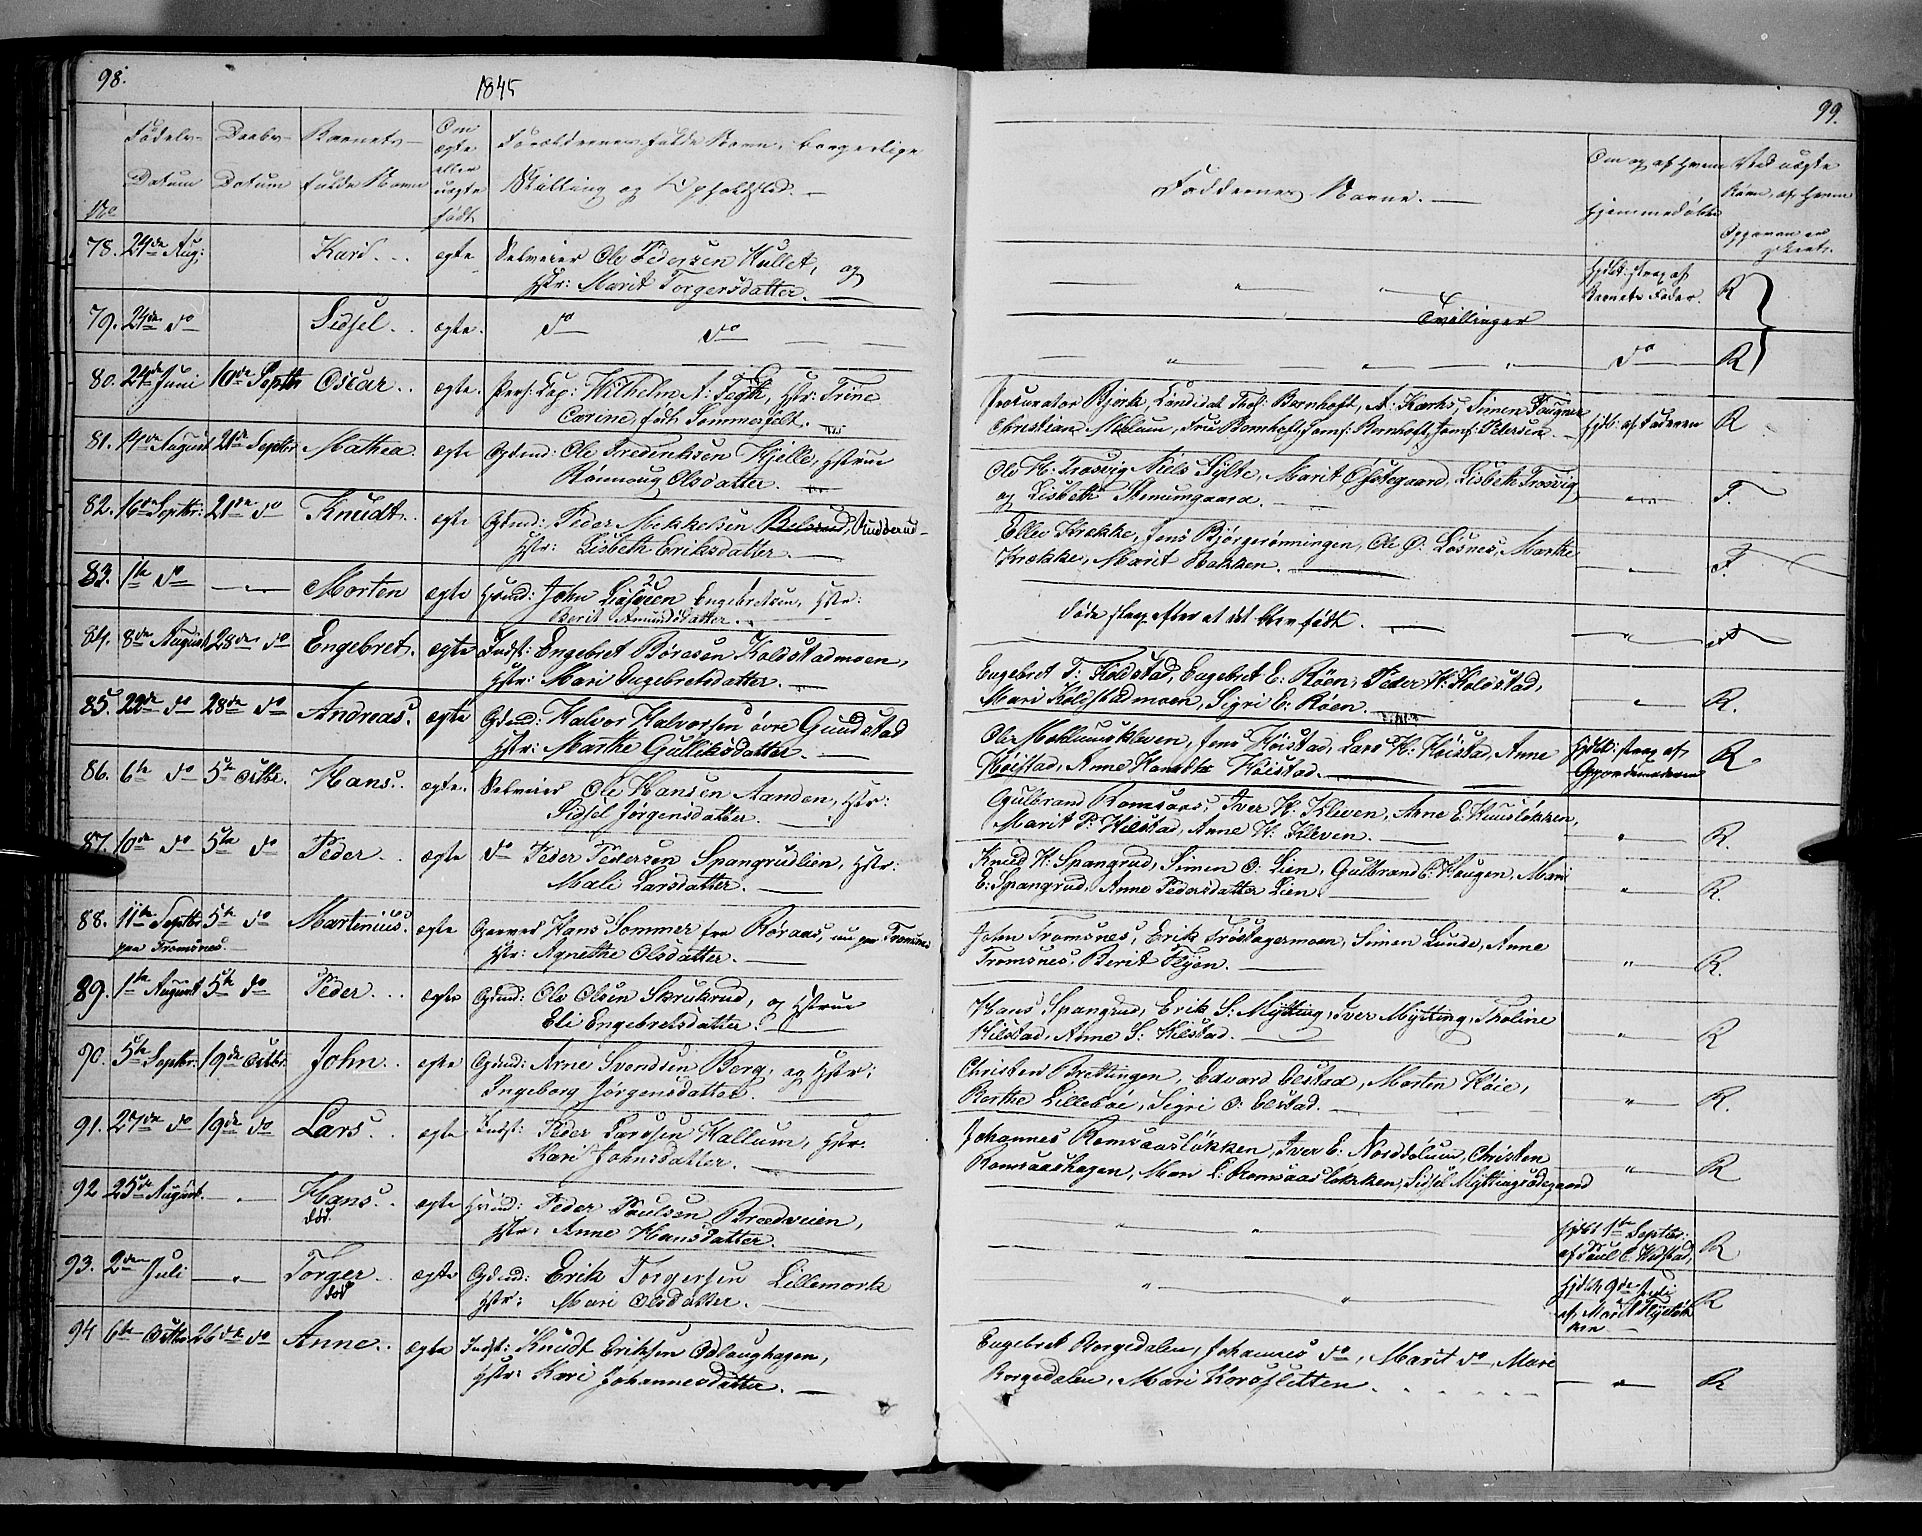 98.
1845
No
Fødsels-
Datum
Daabs-
Datum
Barnets
fulde Navn
Om
ægte
eller
uægte
født
Forældrenes fulde Navn, borgerlige
Stilling og Opholdsted.
78. 24de Aug: Kari. ægte Selveier Ole Pedersen Hullet, og
Hstr: Marit Torgersdatter.
79. 24de do Sidsel. ægte. do do
80. 24de Juni 10de Septbr Oscar. ægte. Pers: Cap: Wilhelm A: Hstr: Trine
Corine født Sommerfelt.
81. 14de August 21de Septbr Mathea. ægte Gdmd: Ole Fredriksen Hjelle, Hstrue
Rønnoug Olsdatter.
82. 16de Septbr: 21de do Knudt. ægte Gdmd: Peder Mikkelsen Rudsrud
Hstr: Lisbeth Eriksdatter
83. 1te do Morten ægte Hmd: John Engebretsen, Hstr:
Berit Amundsdatter.
84. 8de August 28de do Engebret. ægte Indst: Engebret Børesen Koldstadmoen,
Hstr: Mari Engebretsdatter.
85. 22de do 28de do Andreas. ægte Gdmd: Halvor Halvorsen øvre Gundstad
Hstr: Marthe Gulliksdatter.
86. 6te do 5te Octbr. Hans. ægte. Selveier Ole Hansen Aanden, Hstr:
Sidsel Jørgensdatter.
87. 10de do 5te do Peder. ægte do Peder Pedersen Spangrudlien, Hstr:
Mali Larsdatter.
88. 11te Septbr 5te do Martinius. ægte Garver Hans Sommer fra Røraas, nu paa Tromsnes
paa Tromsnes
Hstr: Agnethe Olsdatter.
89. 1te August 5te do Peder. ægte Gdmd: Ole Olsen Skrukrud, og Hstrue
Eli Engebretsdatter.
90. 5te Septbr: 19de Octbr. John. ægte Gdmd: Arne Svendsen Berg, og Hstr:
Ingeborg Jørgensdatter.
91. 27de do 19de do Lars. ægte Indst: Peder Larssen Hallum, Hstr.
Kari Johnsdatter.
92 25de August. Hans. ægte Hmd: Peder Paulsen Brædveien,
død.
Hstr: Anne Hansdatter.
93. 2den Juli Torger ægte Gdmd: Erik Torgersen Lillemork
død
Hstr: Mari Olsdatter.
94 6te Octbr 26de do Anne. ægte Indst: Knudt Eriksen Odlaughagen,
Hstr: Kari Johannesdatter.
99.
Faddernes Navne.
Om og af Hvem
hjemmedøbt
Ved uægte
Børn, af Hvem
Opgaven er
skeet.
hjdbt: strax af
Barnets Fader. R
Tvillinger
do R
Procurator Bjerk, Candidat Thol: Bernhoft, A: Kærhs, Simen Faugner
Christian Melum, Frue Bernhoft, Jomf: Bernhoft, Jomf: Petersen. hjdb: af Faderen R
Ole H: Trosvig, Niels Sylte, Marit Opsegaard, Lisbeth Trosvig
og Lisbeth Stenumgaard. F.
Ellev Krække, Jens Bjørgerønningen, Ole O: Løsnes, Marthe
Krække, Marit Bakken. F.
døde strax efter at det blev født.
Engebret T: Koldstad, Engebret E: Røen, Peder H: Koldstad,
Mari Koldstadmoen, Sigri E: Røen. R.
Ole Meklumskleven, Jens Høistad, Lars H: Høistad, Anne
Høistad, Anne Høistad. hjdbt: strax af
Gjordemoderen R
Gulbrand Romsaas, Iver H: Kleven, Anne E: Huusløkken,
Marit P: Kilstad, Anne H: Kleven. R.
Knud H: Spangrud, Simen O: Lien, Gulbrand C: Haugen, Mari
E: Spangrud, Anne Pedersdatter Lien. R.
John Tromsnes, Erik Trøstagermoen, Simen Lunde, Anne
Tromsnes, Berit Flyen. R.
Hans Spangrud, Erik S: Mytting, Iver Mytting, Tholine
Kilstad, Anne S: Kilstad. R
Christen Brettingen, Edvard Elstad, Morten Høie,
Marthe Lillebøe, Sigri O: Elstad. R.
Johannes Romsaasløkken, Iver E: Norddølum, Christen
Romsaashagen, Mari L: Romsaasløkken, Sidsel Myttingsødegaard R
hjdbt 1te Septbr:
af Paul C. R
hjdbt 9de Juli
af Marit
R
Engebret Borgedalen, Johannes do, Marit do, Mari
Borgedalen, Mari Korsfletten. R